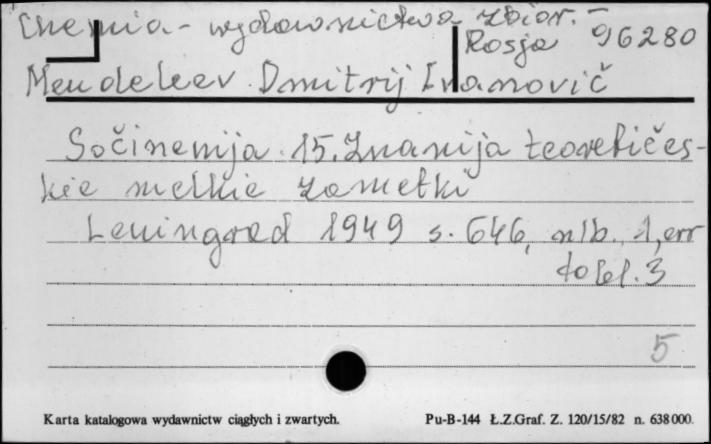 Chemia - wydawnictwa zbior. -
Rosja 96280
Mendeleev Dmitrij Ivanovič
Sočinenija. 15. Znanija teoretičes-
kie melkie zametki
Leningrad 1949 s. 646, nlb. 1, err
tabl. 3
5
Karta katalogowa wydawnictw ciągłych i zwartych. Pu-B-144 Ł.Z.Graf. Z. 120/15/82 n. 638000.